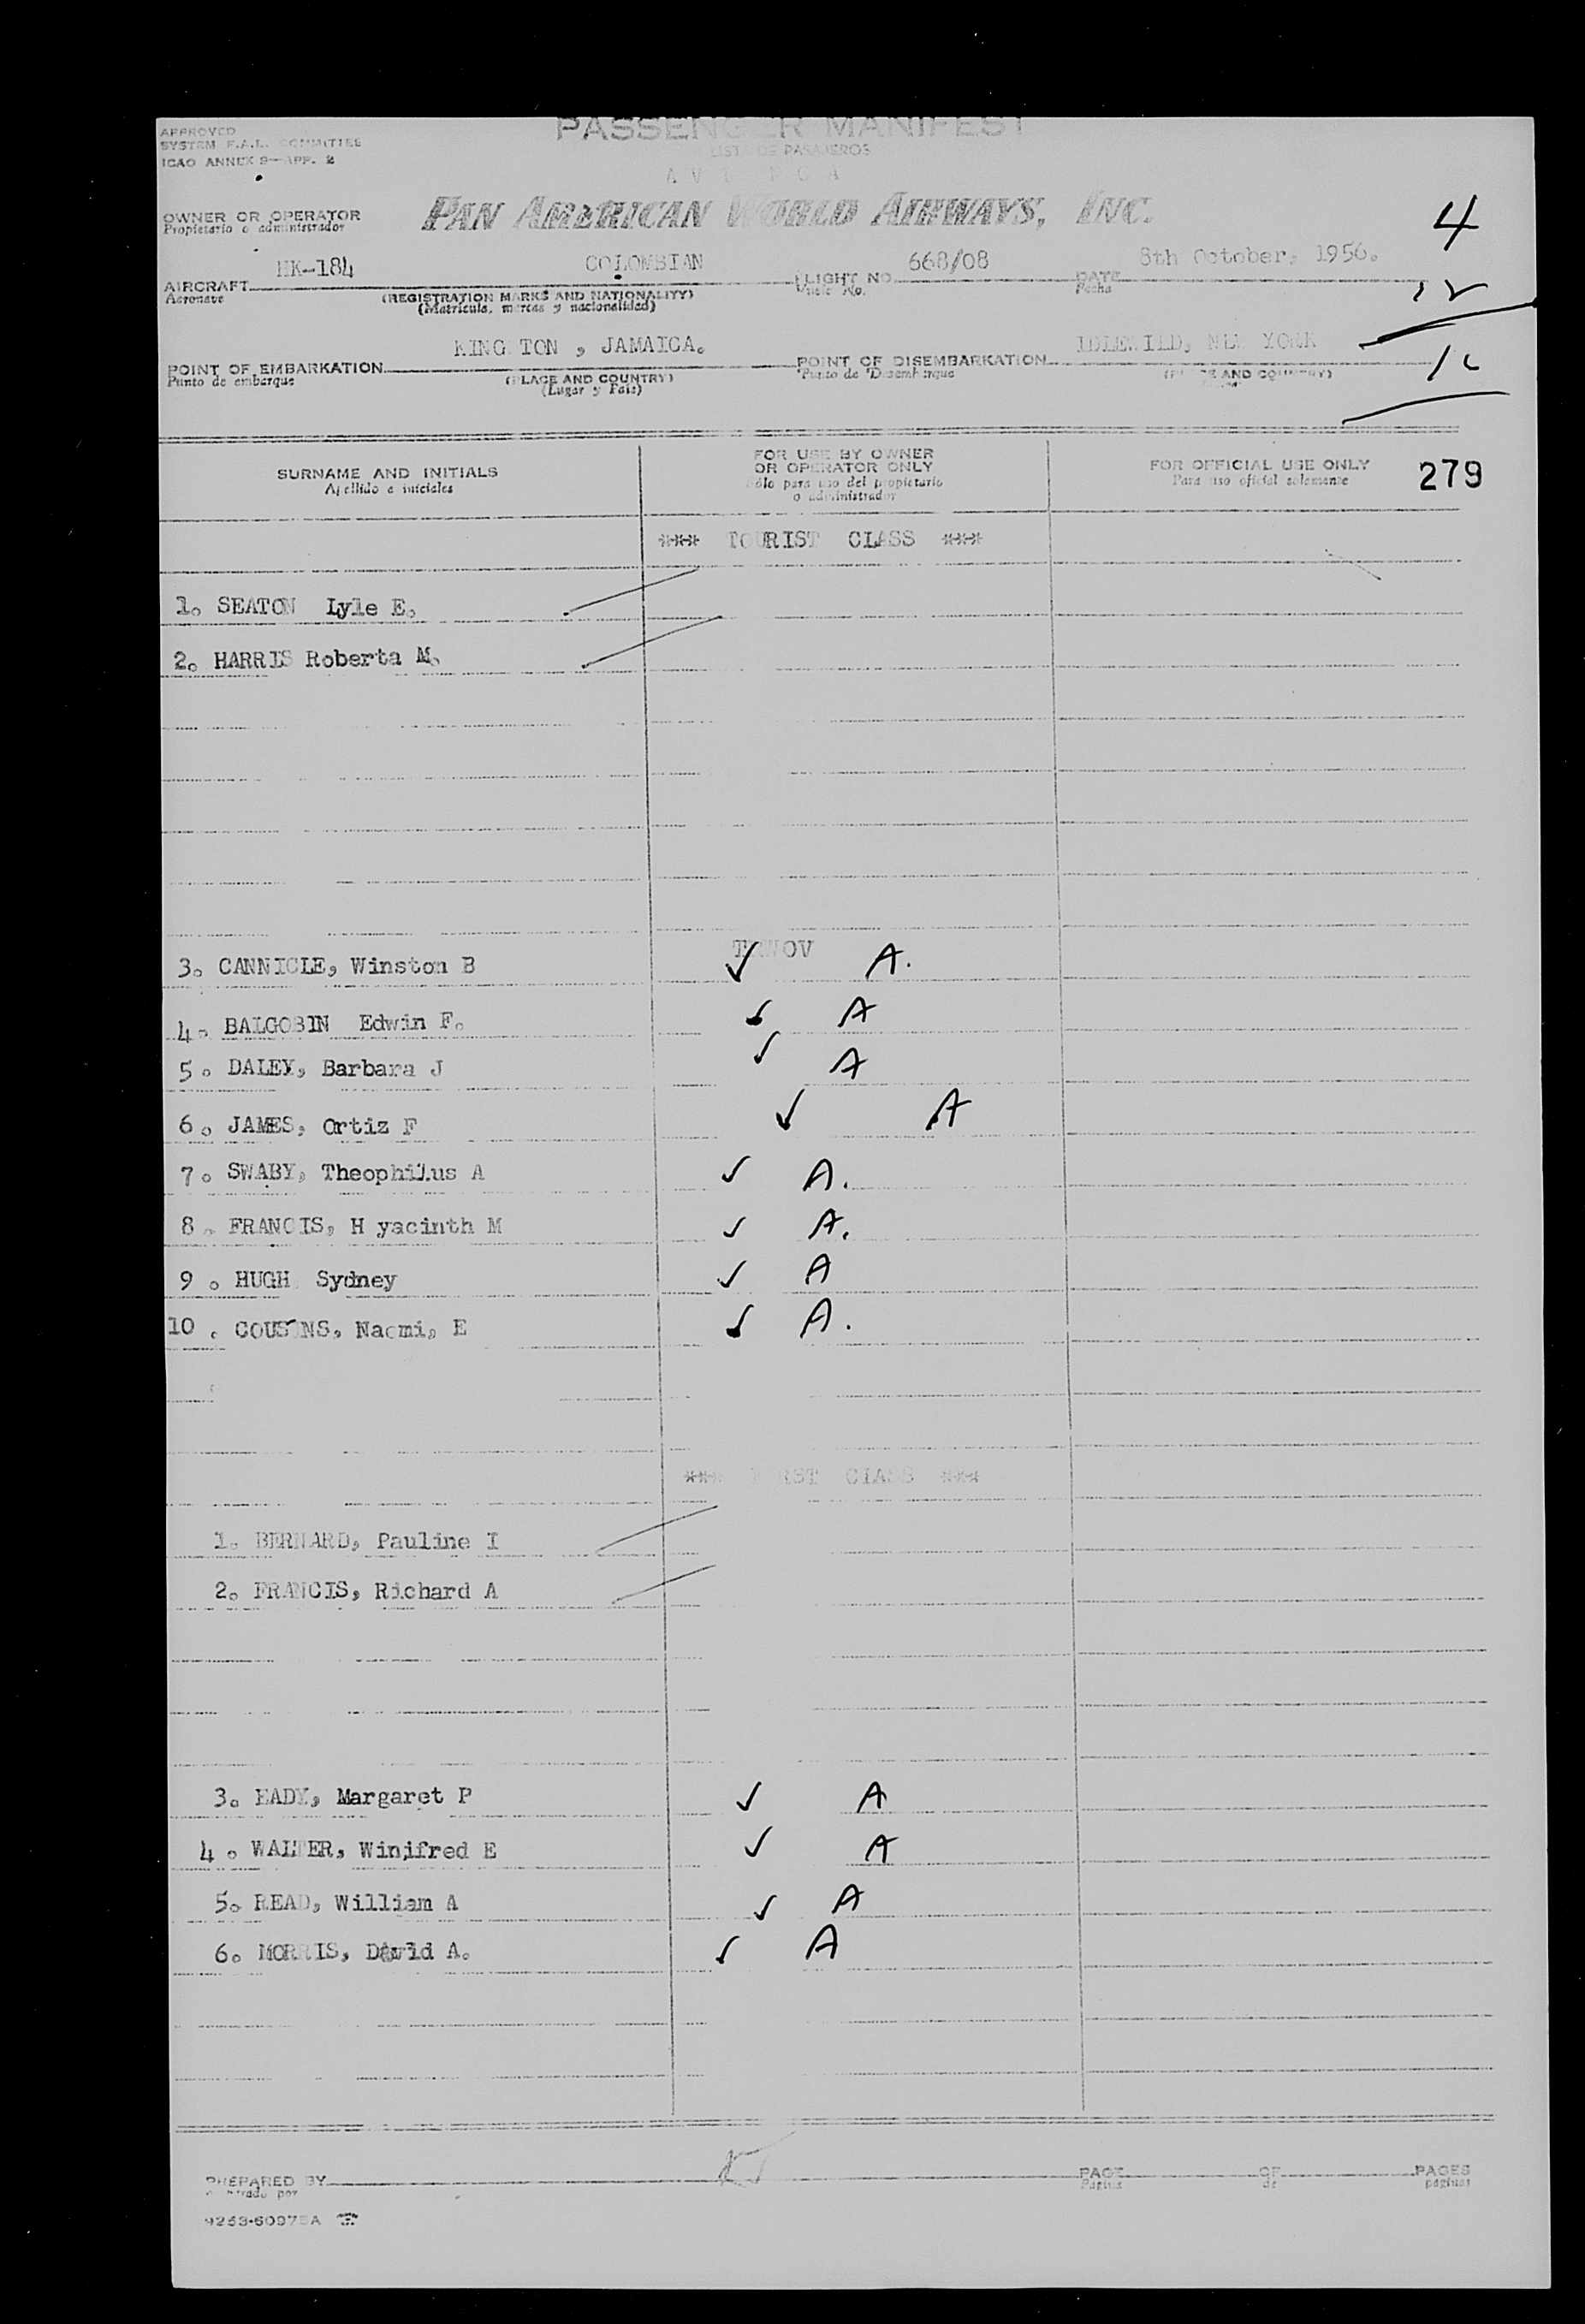 APPROVED
SYSTEM F.A.L. COMMITTEE
ICAO ANNEX 9—APP. 2
PASSENGER MANIFEST
LISTA DE PASAJEROS
OWNER OR OPERATOR
Propietario o administrador
PAN AMERICAN WORLD AIRWAYS, INC.
4
AIRCRAFT HK-184 COLOMBIAN FLIGHT NO. 668/08 DATE 8th October, 1956.
Aeronave (REGISTRATION MARKS AND NATIONALITY) Vuelo No. Fecha
(Matricula, marcas y nacionalidad)
12
POINT OF EMBARKATION KING TON , JAMAICA. POINT OF DISEMBARKATION IDLEWILD, NEW YORK
Punto de embarque (PLACE AND COUNTRY) Punto de Desembarque (PLACE AND COUNTRY)
(Lugar y Pais)
16
SURNAME AND INITIALS
Apellido e iniciales
FOR USE BY OWNER
OR OPERATOR ONLY
Sólo para uso del propietario
o administrador
FOR OFFICIAL USE ONLY
Para uso oficial solamente
279
*** TOURIST CLASS ***
1. SEATON Lyle E.
2. HARRIS Roberta M.
3. CANNICLE, Winston B ✓ A.
4. BALGOBIN Edwin F. ✓ A
5. DALEY, Barbara J ✓ A
6. JAMES, Ortiz F ✓ A
7. SWABY, Theophilus A ✓ A.
8. FRANCIS, H yacinth M ✓ A.
9. HUGH Sydney ✓ A
10. COUSINS, Naomi, E ✓ A.
*** FIRST CLASS ***
1. BERNARD, Pauline I
2. FRANCIS, Richard A
3. EADY, Margaret P ✓ A
4. WALTER, Winifred E ✓ A
5. READ, William A ✓ A
6. MORRIS, David A. ✓ A
PREPARED BY PAGE OF PAGES
Pagina de paginas